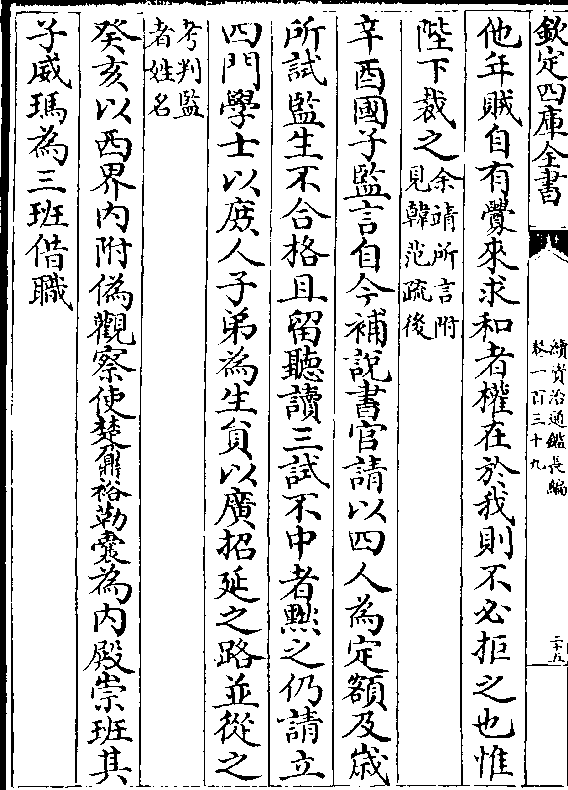 欽定四庫全書
續資治通鑑長編
卷一百三十九
二十五
他年賊自有釁來求和者權在於我則不必拒之也惟
陛下裁之余靖所言附
見韓范疏後
辛酉國子監言自今補説書官請以四人為定額及歳
所試監生不合格且留聽讀三試不中者黜之仍請立
四門學士以庶人子弟為生員以廣招延之路並從之
考判監
者姓名
癸亥以西界内附偽觀察使楚鼐裕勒囊為内殿崇班其
子威瑪為三班借職